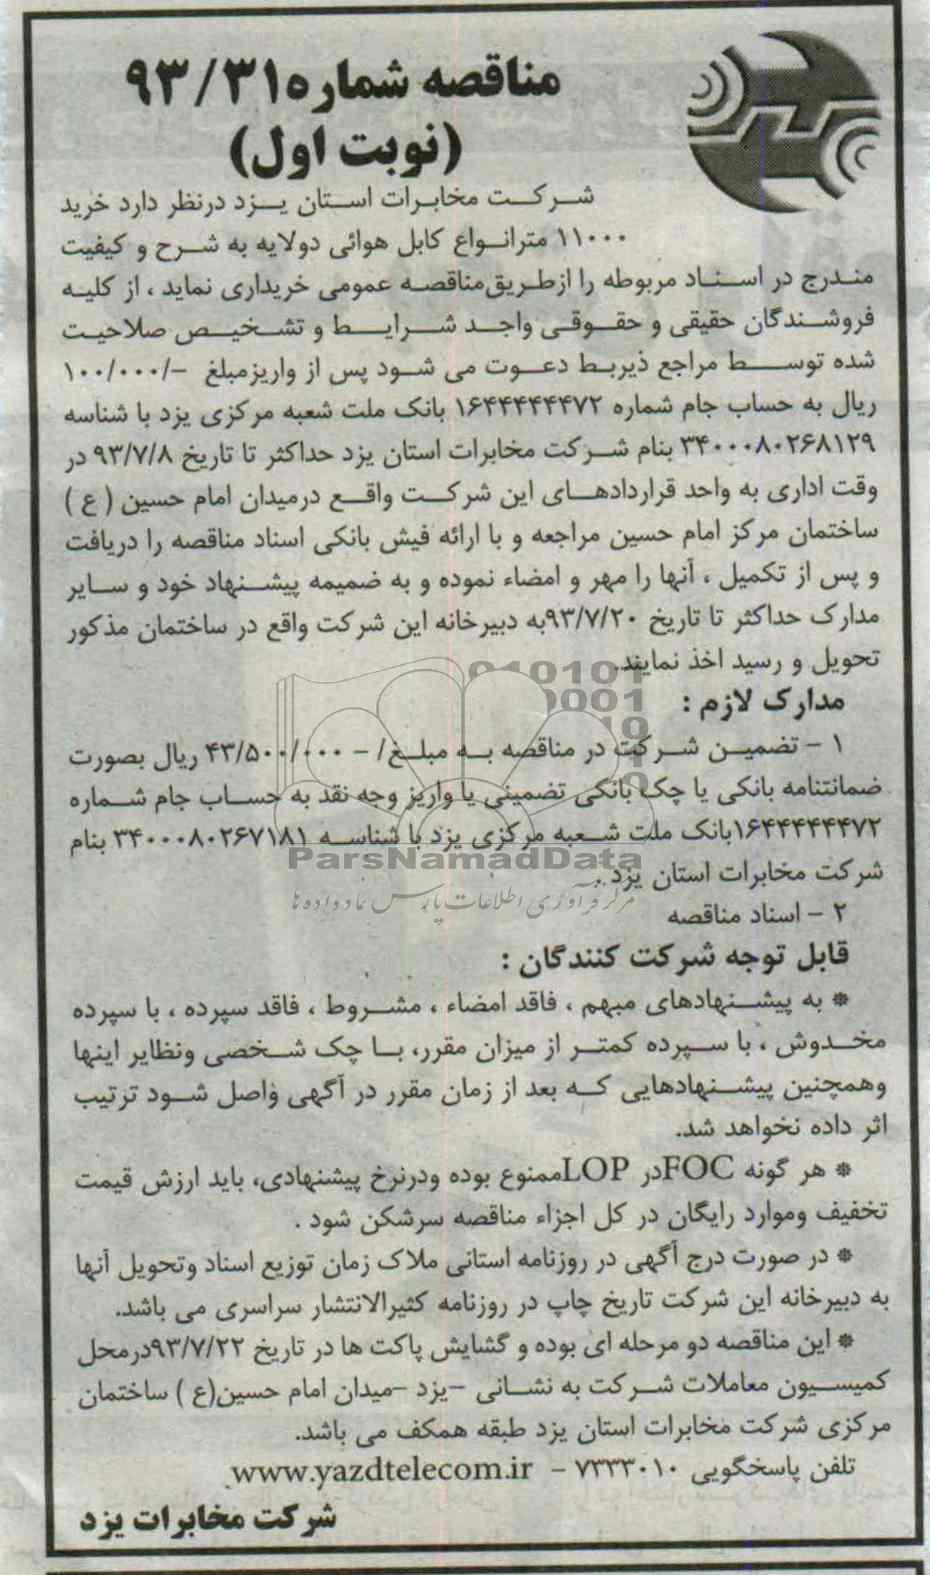 مناقصه شماره ۹۳/۳۱
(نوبت اول)
شرکت مخابرات استان یزد درنظر دارد خرید
۱۱۰۰۰ مترانواع کابل هوائی دولایه به شرح و کیفیت
مندرج در اسناد مربوطه را ازطریق مناقصه عمومی خریداری نماید ، از کلیه
فروشندگان حقیقی و حقوقی واجد شرایط و تشخیص صلاحیت
شده توسط مراجع ذیربط دعوت می شود پس از واریزمبلغ -/۱۰۰/۰۰۰
ریال به حساب جام شماره ۱۶۴۴۴۴۴۴۷۲ بانک ملت شعبه مرکزی یزد با شناسه
۳۴۰۰۰۸۰۲۶۸۱۲۹ بنام شرکت مخابرات استان یزد حداکثر تا تاریخ ۹۳/۷/۸ در
وقت اداری به واحد قراردادهای این شرکت واقع درمیدان امام حسین ( ع )
ساختمان مرکز امام حسین مراجعه و با ارائه فیش بانکی اسناد مناقصه را دریافت
و پس از تکمیل ، آنها را مهر و امضاء نموده و به ضمیمه پیشنهاد خود و سایر
مدارک حداکثر تا تاریخ ۹۳/۷/۲۰به دبیرخانه این شرکت واقع در ساختمان مذکور
تحویل و رسید اخذ نمایند.
مدارک لازم :
۱ - تضمین شرکت در مناقصه به مبلغ/ - ۴۳/۵۰۰/۰۰۰ ریال بصورت
ضمانتنامه بانکی یا چک بانکی تضمینی یا واریز وجه نقد به حساب جام شماره
۱۶۴۴۴۴۴۴۷۲بانک ملت شعبه مرکزی یزد با شناسه ۳۴۰۰۰۸۰۲۶۷۱۸۱ بنام
شرکت مخابرات استان یزد .
ParsNamadData
مرکز فرآوری اطلاعات پارس نماد داده ها
۲ - اسناد مناقصه
قابل توجه شرکت کنندگان :
* به پیشنهادهای مبهم ، فاقد امضاء ، مشروط ، فاقد سپرده ، با سپرده
مخدوش ، با سپرده کمتر از میزان مقرر، با چک شخصی ونظایر اینها
وهمچنین پیشنهادهایی که بعد از زمان مقرر در آگهی واصل شود ترتیب
اثر داده نخواهد شد.
* هر گونه FOCدر LOPممنوع بوده ودرنرخ پیشنهادی، باید ارزش قیمت
تخفیف وموارد رایگان در کل اجزاء مناقصه سرشکن شود .
* در صورت درج آگهی در روزنامه استانی ملاک زمان توزیع اسناد وتحویل آنها
به دبیرخانه این شرکت تاریخ چاپ در روزنامه کثیرالانتشار سراسری می باشد.
* این مناقصه دو مرحله ای بوده و گشایش پاکت ها در تاریخ ۹۳/۷/۲۲درمحل
کمیسیون معاملات شرکت به نشانی -یزد -میدان امام حسین(ع ) ساختمان
مرکزی شرکت مخابرات استان یزد طبقه همکف می باشد.
تلفن پاسخگویی ۷۲۳۳۰۱۰ - www.yazdtelecom.ir
شرکت مخابرات یزد